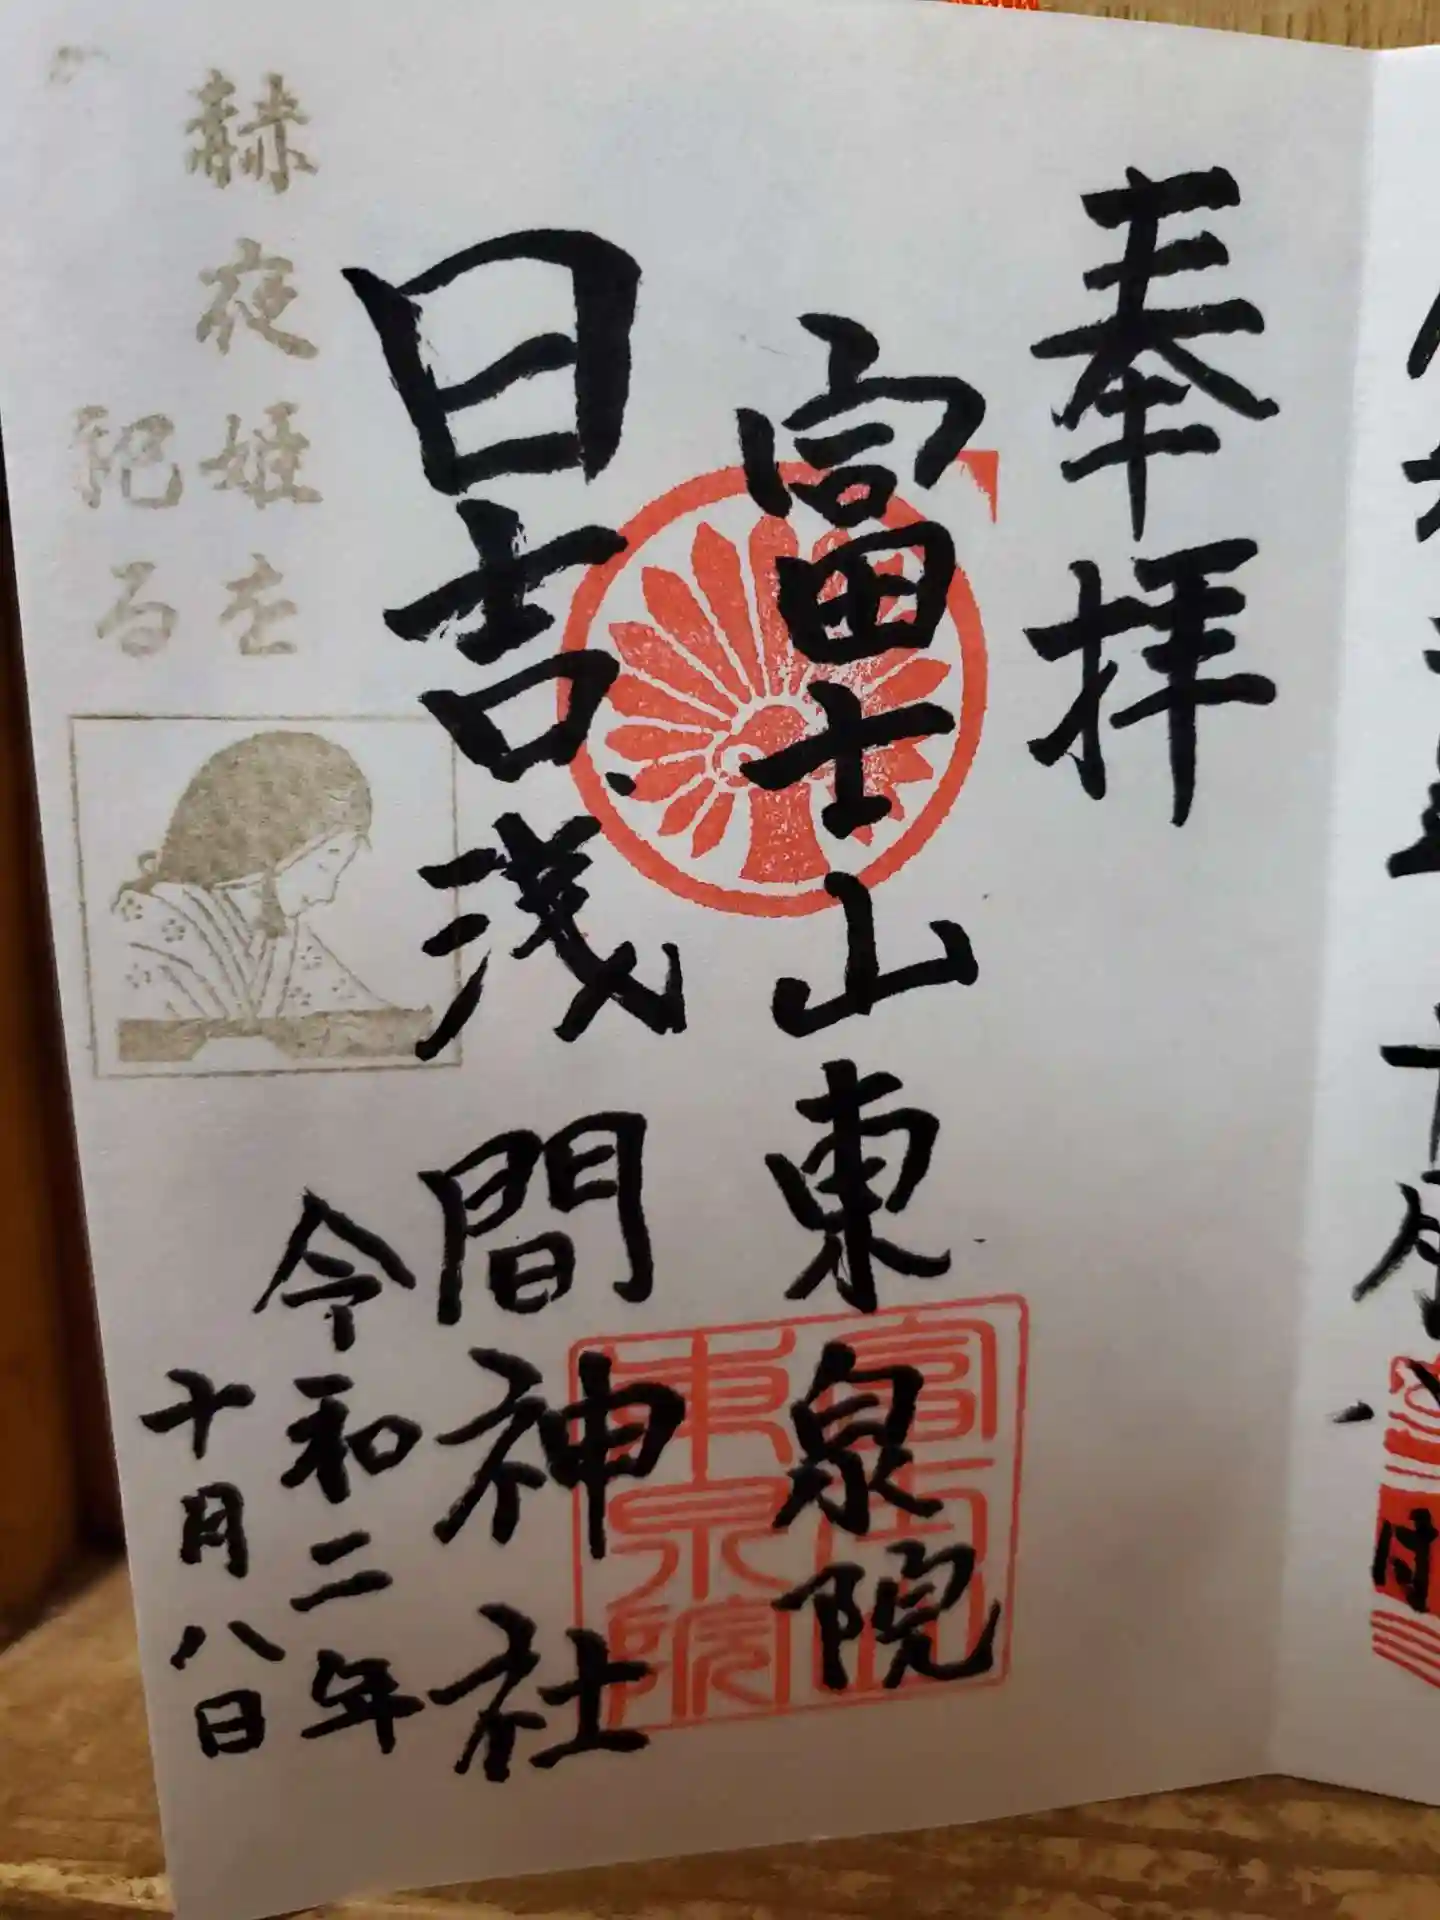 奉拝
富士山東泉院
日吉浅間神社
令和二年
十月八日
赫夜姫を
祀る
富士山
東泉院